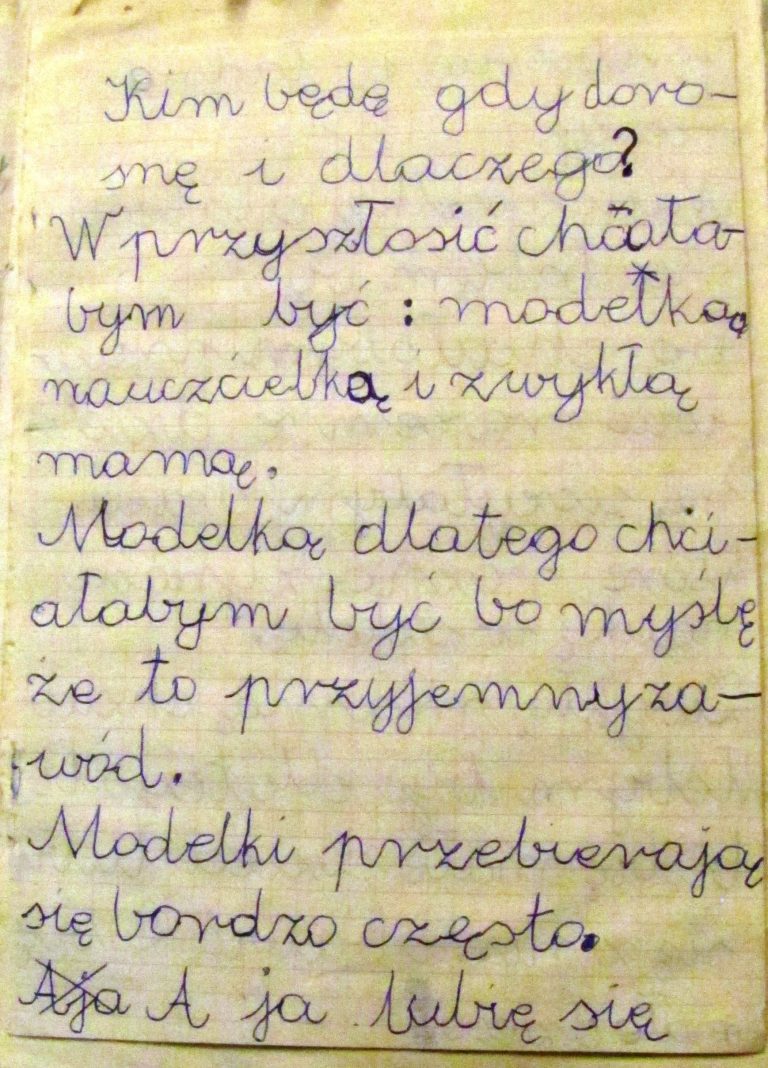 Kim będę gdy doro-
snę i dlaczego?
W przyszłosić chciała-
bym być : modelką
nauczcielką i zwykłą
mamą.
Modelką dlatego chci-
ałabym być bo myślę
że to przyjemny za-
wód.
Modelki przebierają
się bardzo często.
A ja A ja lubię się